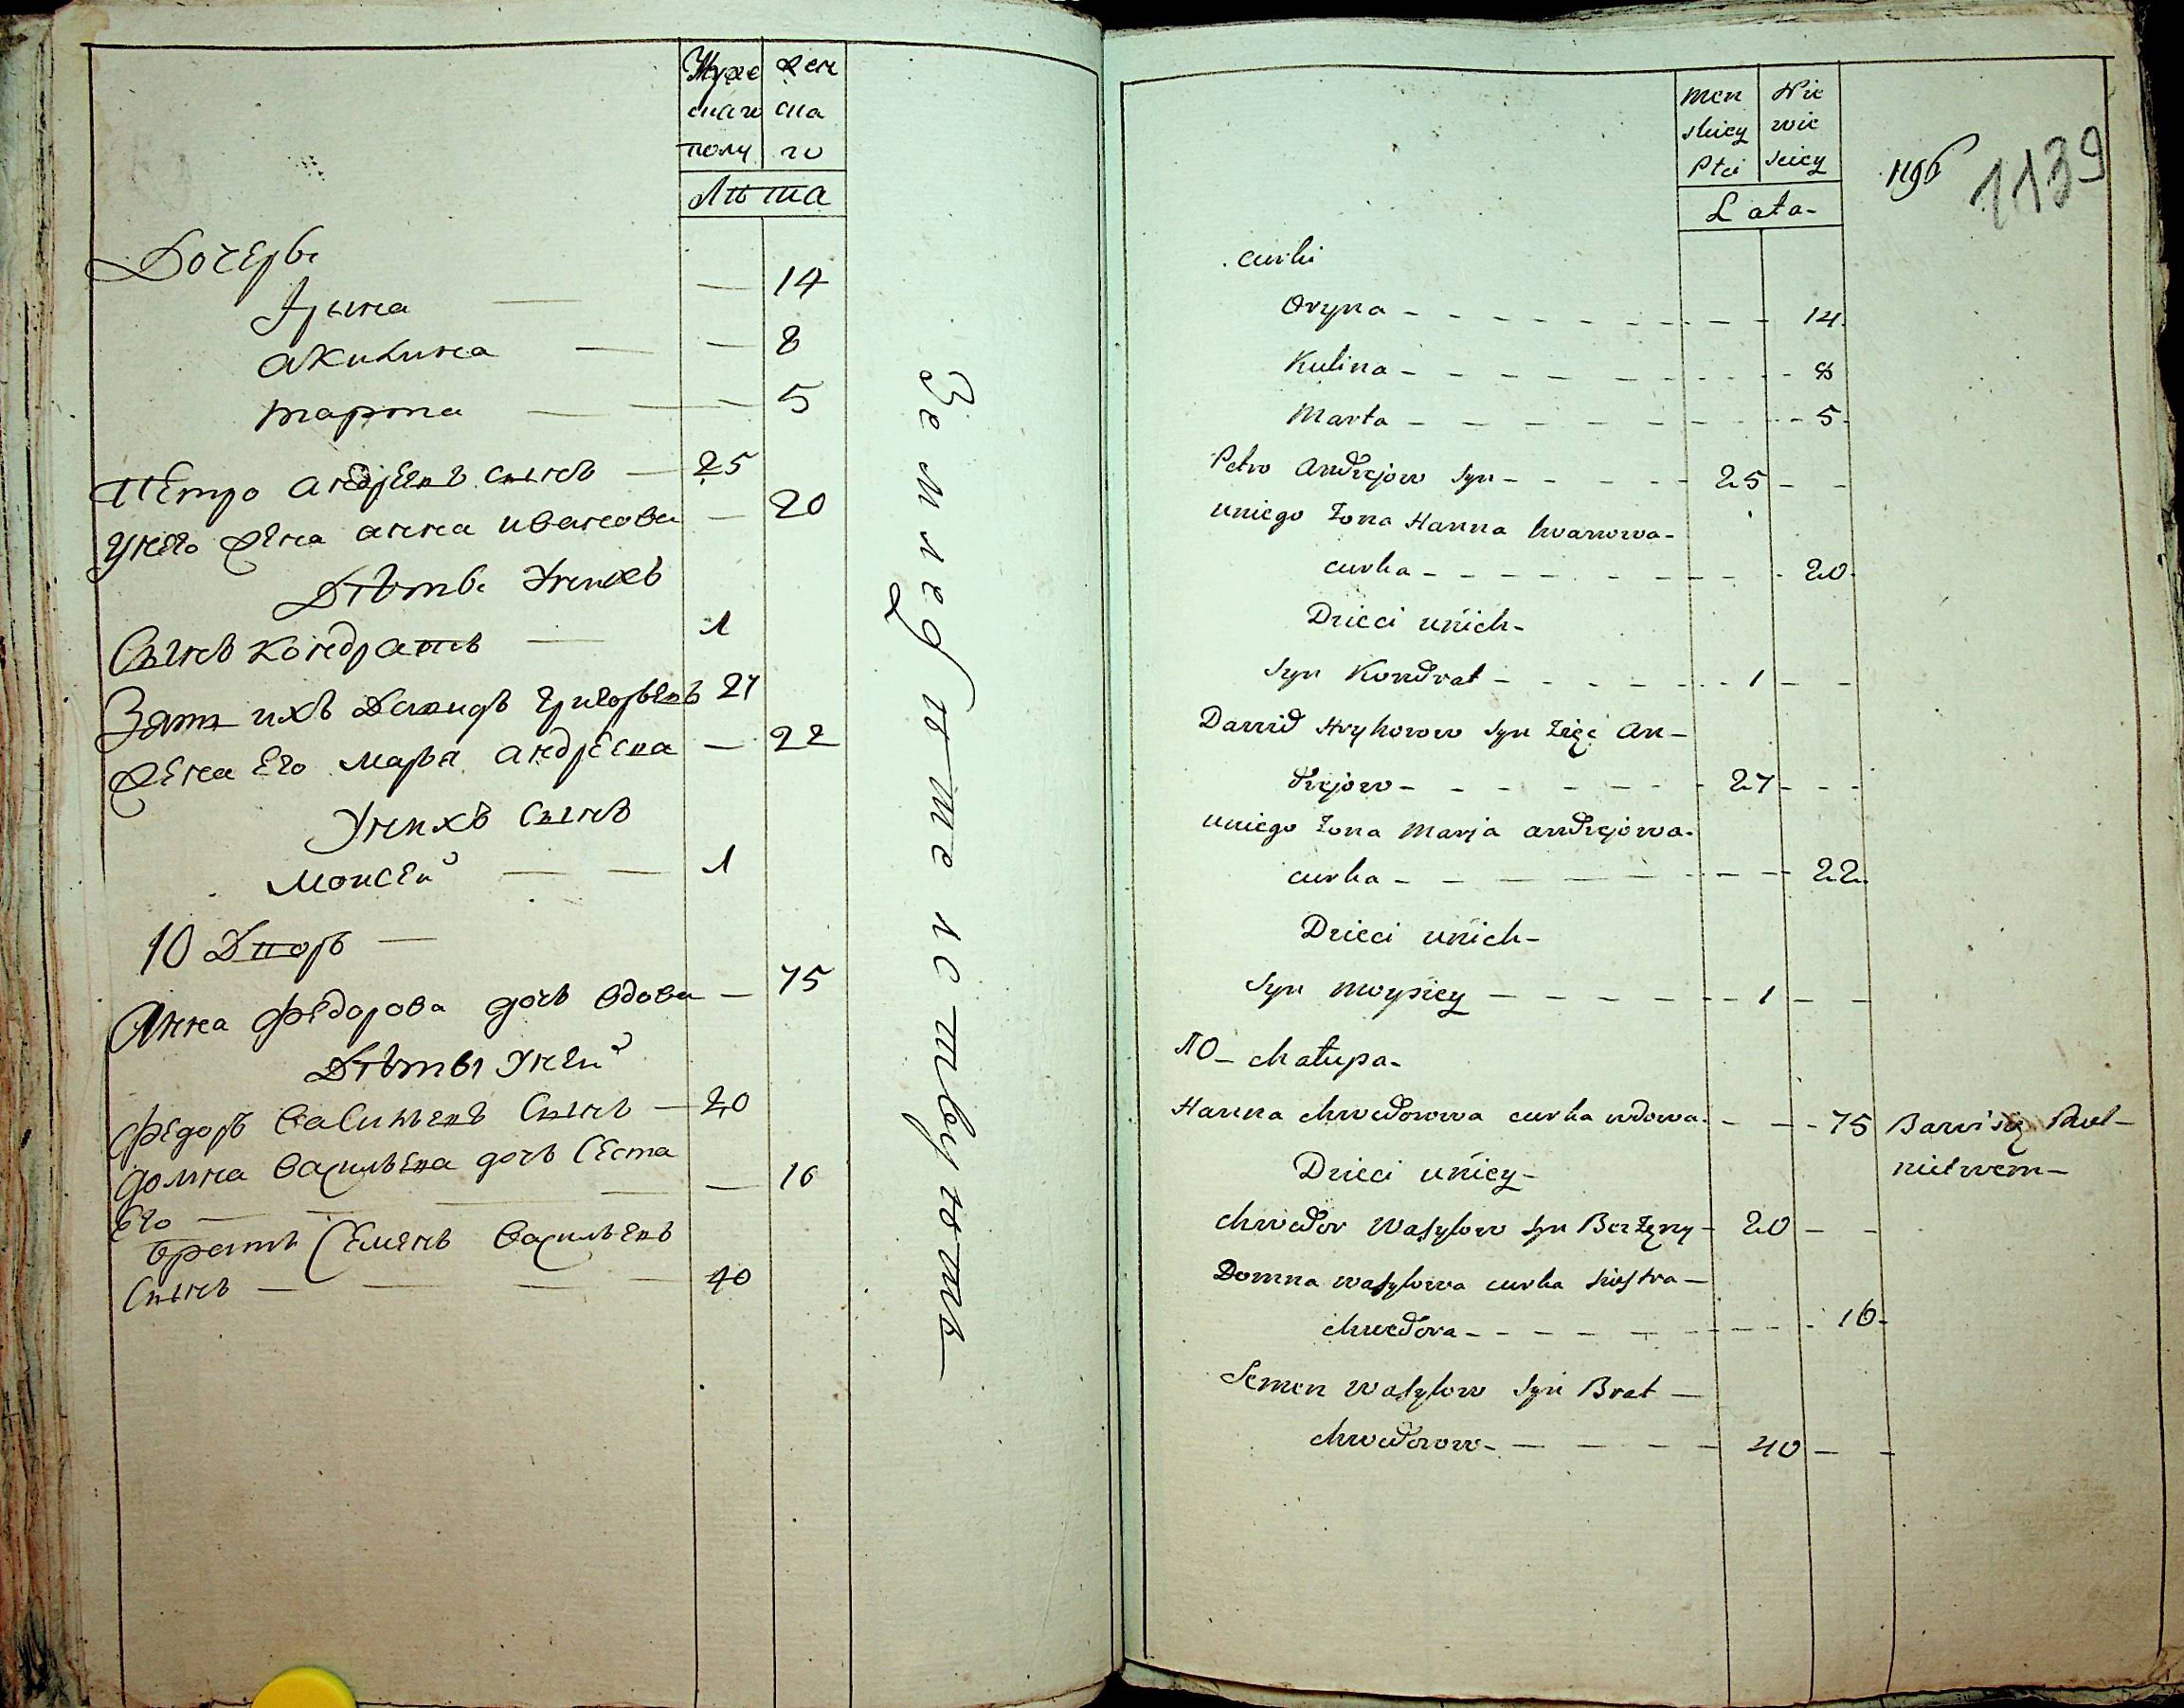 Муже Жен
скаго ска
полу го
Лѣта
Дочерѣ
Ирина — — 14
акилина — — 8
марта — — 5
Петро андреевъ сынъ — 25
унего жена анна иванова — 20
Дѣтѣ Унихъ
Сынъ кондратъ — 1
Зять ихъ Давидъ григорьевъ 27
жена его марья андреева — 22
Унихъ сынъ
моисей — — 1
10 Дворъ —
Анна федорова дочь вдова — 75
Дѣты Уней
федоръ васильевъ сынъ — 20
домна васильева дочь сестра
его — — — — 16
братъ Семенъ васильевъ
сынъ — — — — 40
Земледѣлие жствуютъ
Męz Nie
skiey wie
Płci skiey
Lata
1139
curki
Oryna - - - - 14
Kulina - - - - 8
Marta - - - - 5
Petro Andrejow syn - - - 25 - -
uniego żona Hanna Iwanowa
curka - - - - 20
Dzieci unich
Syn Kondrat - - - - 1 - -
Dawid Hryhorow syn zięć An-
drejow - - - - 27 - - -
uniego żona Marja andrejowa
curka - - - - 22
Dzieci unich
Syn Moysiey - - - - 1 - -
10 - chałupa
Hanna chwedorowa curka wdowa - - - 75 Bawi się Rol-
nictwem
Dzieci uniey
chwedor Wasylow syn Bezżęny - 20 - -
Domna wasylowa curka siostra
chwedora - - - - 16
Semen Wasylow syn Brat
chwedorow - - - - 40 - -